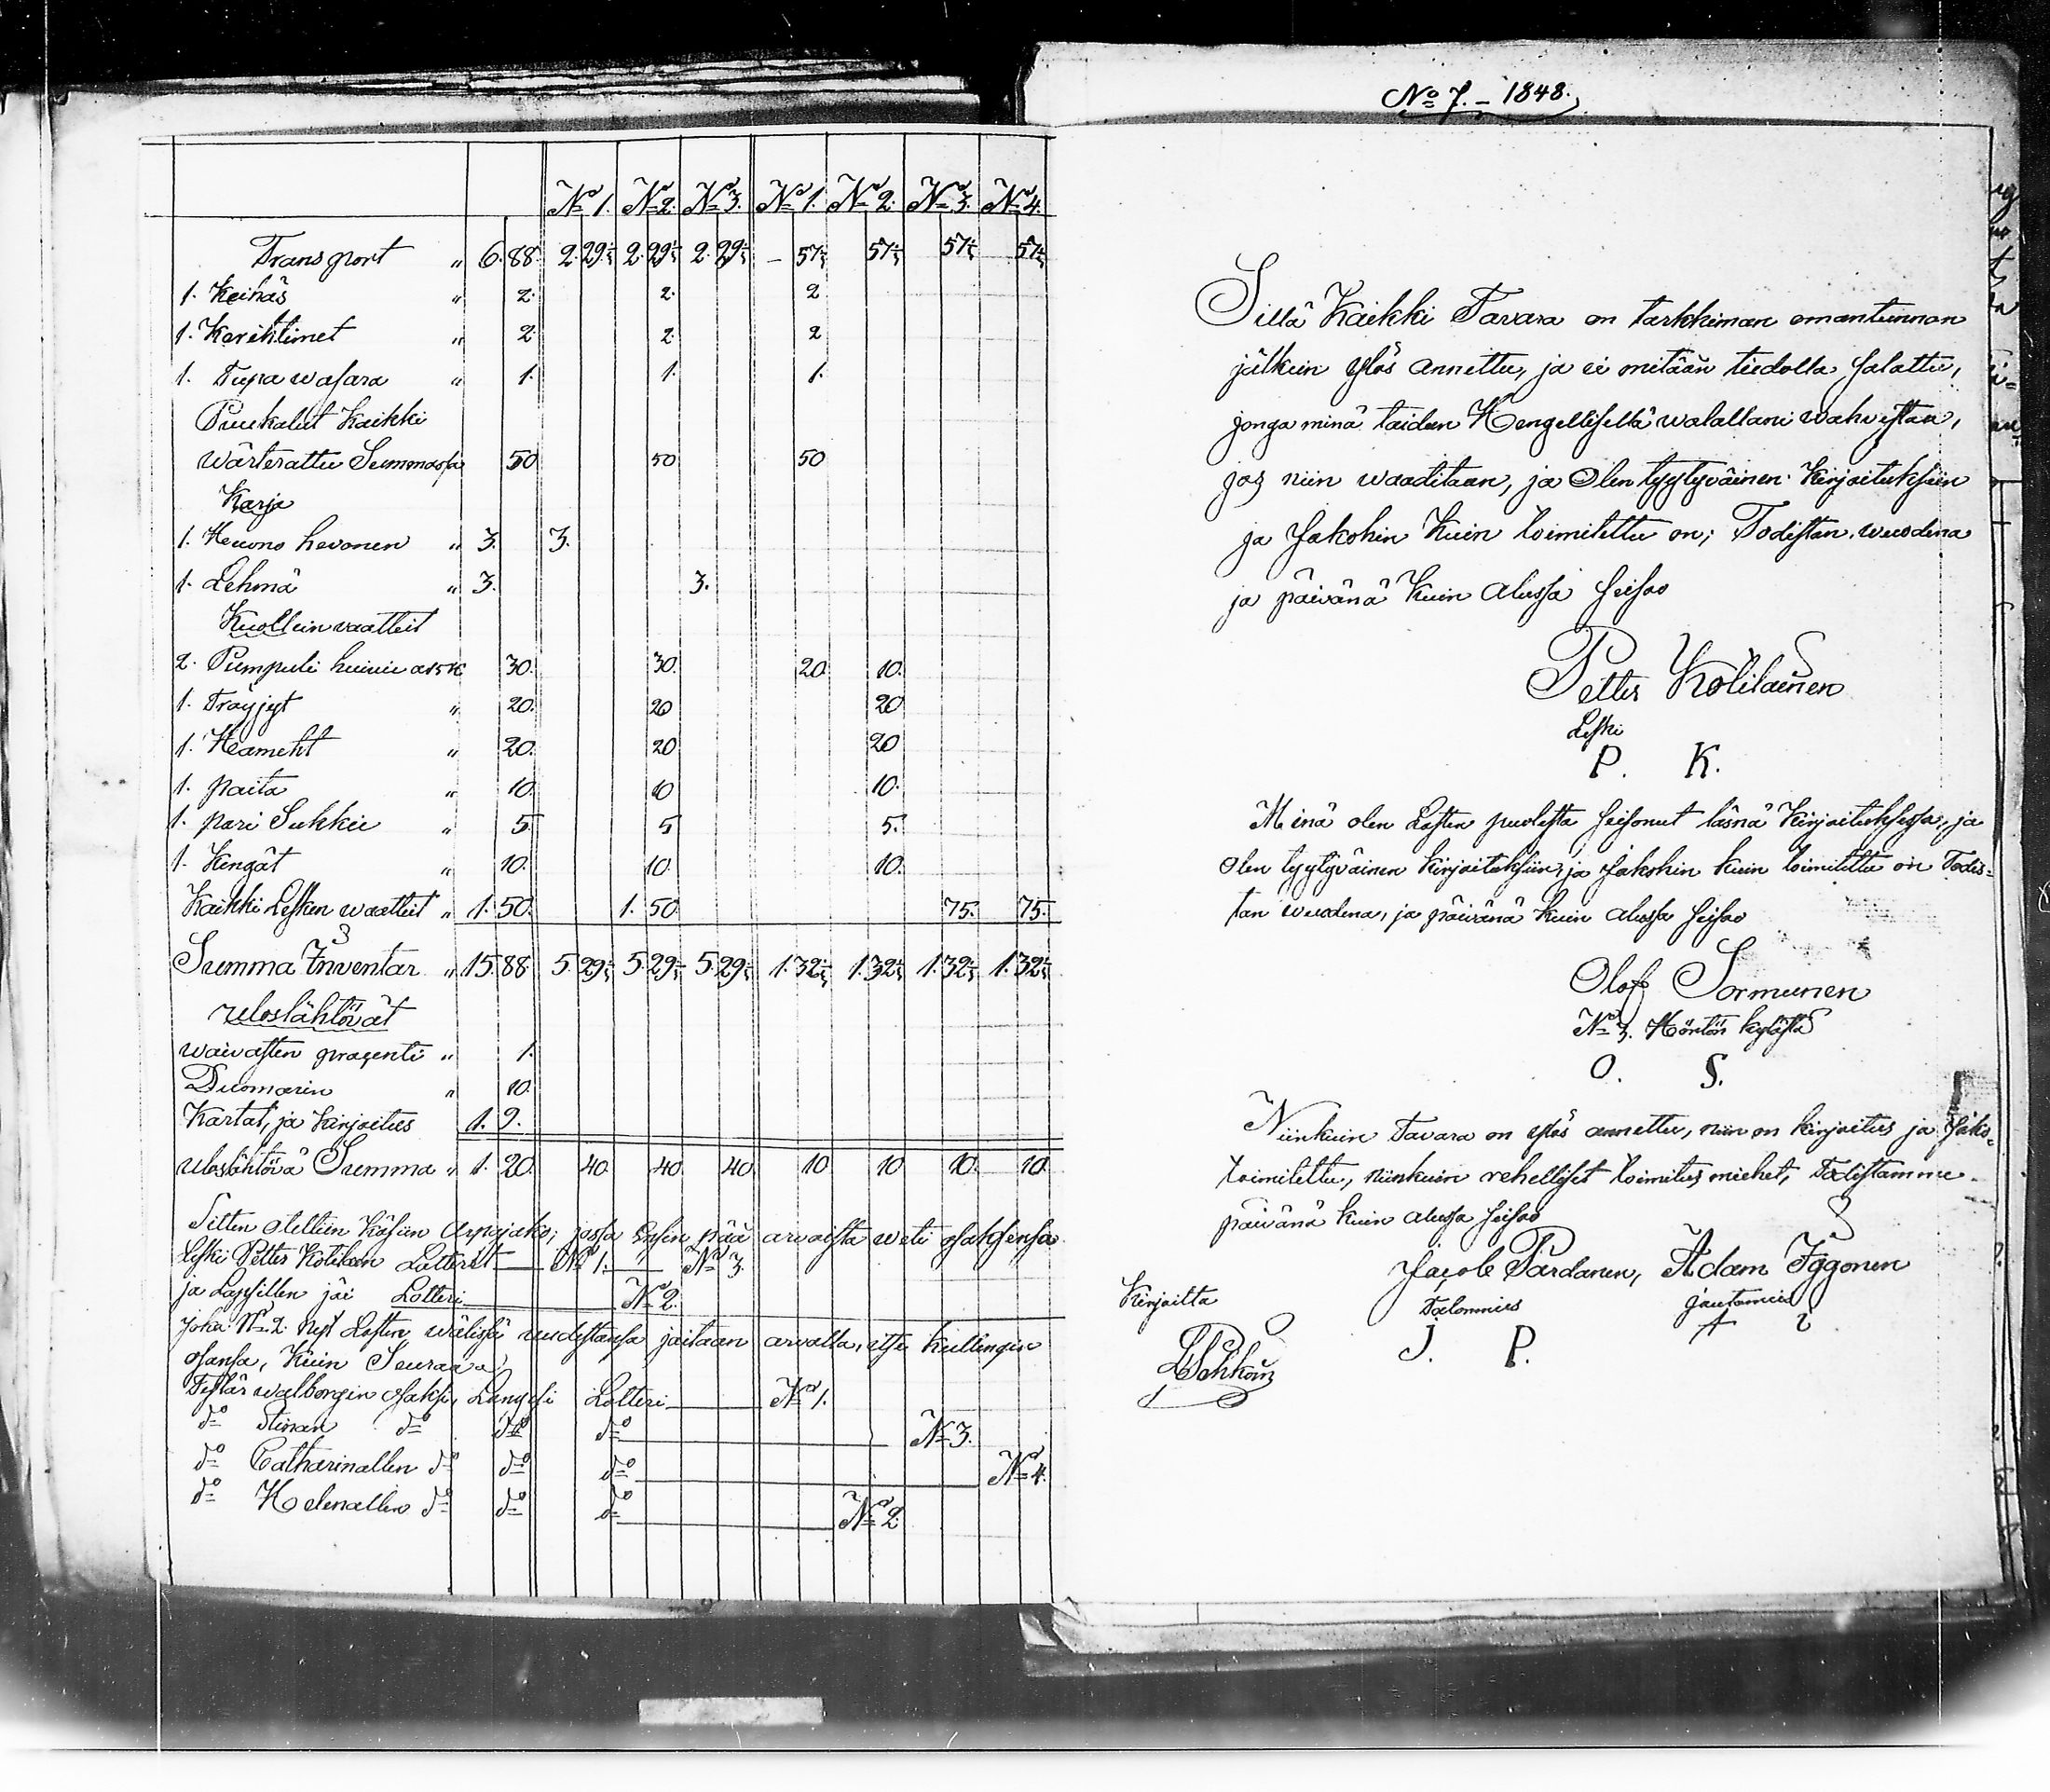 No 1. No 2. No 3. No 1. No 2. No 3. No 4.
Transport " 6. 88. 2. 29 1/3 2. 29 1/3 2. 29 1/3 - 57 1/3 57 1/3 57 1/3 57 1/3
1. Keihäs " 2. 2. 2
1. Kerihtimet " 2 2. 2
1. Tupa wasara " 1. 1. 1.
Puukalut Kaikki
wärterattu Summassa 50 50 50
Karja
1. Huono hevonen " 3. 3.
1. Lehmä " 3. 3.
Kuollein vaatteit
2. Pumpuli huivie a 15 K 30. 30. 20 10.
1. Tröyjyt " 20. 20 20
1. Hameht " 20. 20 20
1. paita " 10. 10 10.
1. pari Sukkii " 5. 5 5.
1. Kengät " 10. 10. 10.
Kaikki Lesken waatteit " 1. 50. 1. 50 75. 75.
Summa Inventar " 15. 88. 5. 29 1/3 5. 29 1/3 5. 29 1/3 1. 32 1/3 1. 32 1/3 1. 32 1/3 1. 32 1/3
uloslähtövät
waivasten prosenti " 1.
Duomarin " 10.
Kartat, ja kirjoitus 1. 9.
uloslähtövä Summa " 1. 20. 40 40. 40 10 10 10. 10
Sitten otettiin käsiin Arpajako; jossa Ensin pää arvoista weti osaksensa
Leski Petter Kötilain Lotterit No 1. No 3.
ja Lapsillen jäi Lotteri No 2.
Joka No 2. nyt Lasten wälissä uudestansa jaetaan arvalla, itse kullengin
osansa, Kuin Seuraava
Tyttär walborgin osaksi, Langesi Lotteri No 1.
do Stinan do do do No 3.
do Catharinallen do do do No 4.
do Helenallen do do do No 2
No 7. - 1848.
Sillä Kaikki Tavara on tarkkiman omantunnon
jälkein ylös annettu, ja ei mitään tiedolla salattu,
jonga minä taidan Hengellisellä walallani wahvistaa,
jos niin waaditaan, ja Olen tyytyväinen Kirjoituksiin
ja Jakohin Kuin toimitettu on; Todistan, wuodena
ja päivänä Kuin alussa seisoo
Petter Kötilainen
Leski
P. K.
Minä olen Lasten puolesta seisonut läsnä Kirjoituksessa, ja
Olen tyytyväinen kirjoituksiin, ja Jakohin kuin toimitettu on Todis=
tan wuodena, ja päivänä kuin alussa seisoo
Olof Sormunen
No 3. Höntön kylästä
O. S.
Niinkuin Tavara on ylös annettu, niin on kirjoitus ja Jako=
toimitettu, niinkuin rehelliset toimitus miehet, Todistamme
päivänä kuin alussa seisoo
Jacob Pardanen, Adam Iggonen
Kirjoitta Talonmies Jautomies
J. P.